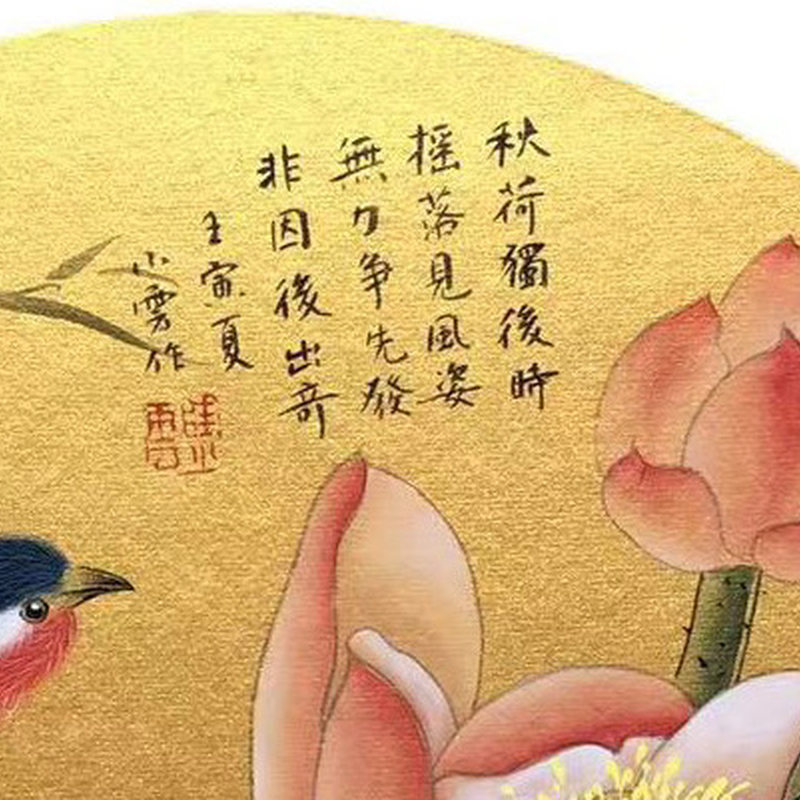 秋荷獨後時
搖落見風姿
無力爭先發
非因後出奇
壬寅夏
小雲作